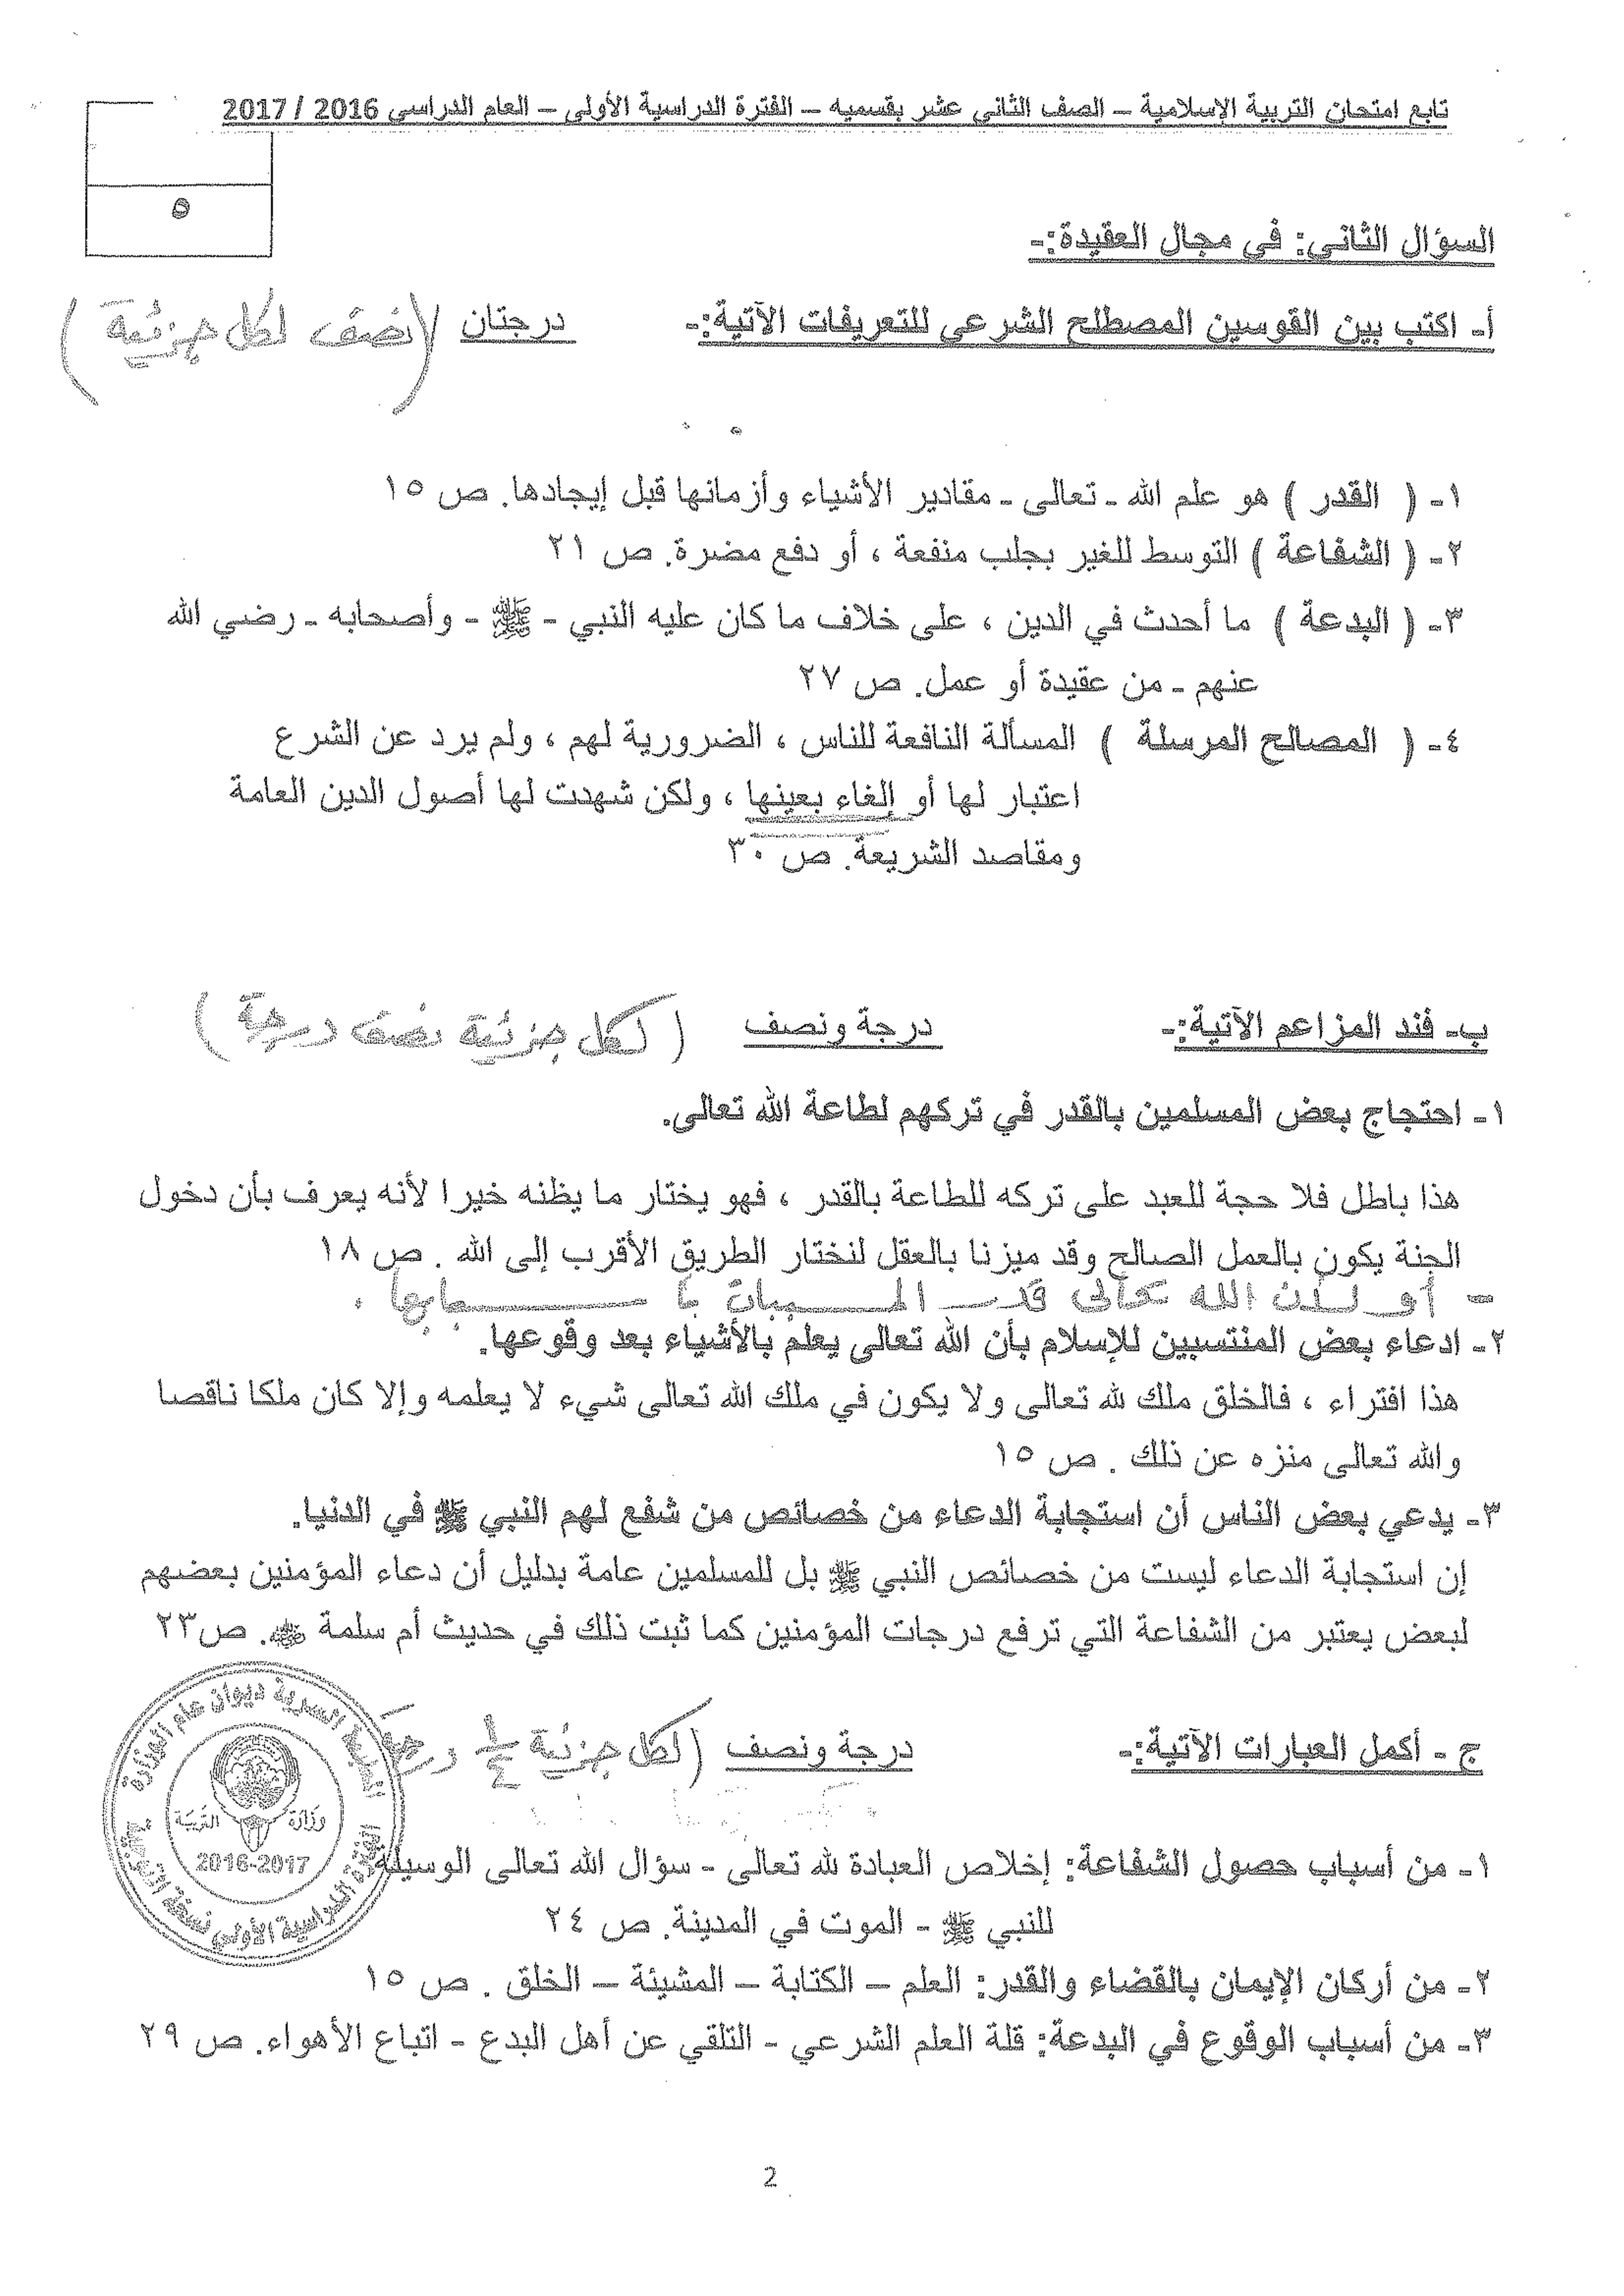 تابع امتحان التربية الإسلامية – الصف الثاني عشر بقسميه – الفترة الدراسية الأولى – العام الدراسي 2016 / 2017
٥
السؤال الثاني: في مجال العقيدة:-
أ- اكتب بين القوسين المصطلح الشرعي للتعريفات الآتية:- درجتان (نصف لكل جزئية)
١- ( القدر ) هو علم الله - تعالى - مقادير الأشياء وأزمانها قبل إيجادها. ص ١٥
٢- ( الشفاعة ) التوسط للغير بجلب منفعة ، أو دفع مضرة. ص ٢١
٣- ( البدعة ) ما أحدث في الدين ، على خلاف ما كان عليه النبي - ﷺ - وأصحابه - رضي الله
عنهم - من عقيدة أو عمل. ص ٢٧
٤- ( المصالح المرسلة ) المسألة النافعة للناس ، الضرورية لهم ، ولم يرد عن الشرع
اعتبار لها أو إلغاء بعينها ، ولكن شهدت لها أصول الدين العامة
ومقاصد الشريعة. ص ٣٠
ب- فند المزاعم الآتية:- درجة ونصف (لكل جزئية نصف درجة)
١- احتجاج بعض المسلمين بالقدر في تركهم لطاعة الله تعالى.
هذا باطل فلا حجة للعبد على تركه للطاعة بالقدر ، فهو يختار ما يظنه خيرا لأنه يعرف بأن دخول
الجنة يكون بالعمل الصالح وقد ميزنا بالعقل لنختار الطريق الأقرب إلى الله . ص ١٨
- أو لأن الله تعالى قدر المسببات بأسبابها .
٢- ادعاء بعض المنتسبين للإسلام بأن الله تعالى يعلم بالأشياء بعد وقوعها.
هذا افتراء ، فالخلق ملك لله تعالى ولا يكون في ملك الله تعالى شيء لا يعلمه وإلا كان ملكا ناقصا
والله تعالى منزه عن ذلك . ص ١٥
٣- يدعي بعض الناس أن استجابة الدعاء من خصائص من شفع لهم النبي ﷺ في الدنيا.
إن استجابة الدعاء ليست من خصائص النبي ﷺ بل للمسلمين عامة بدليل أن دعاء المؤمنين بعضهم
لبعض يعتبر من الشفاعة التي ترفع درجات المؤمنين كما ثبت ذلك في حديث أم سلمة. ص٢٣
ج - أكمل العبارات الآتية:- درجة ونصف (لكل جزئية درجة
١- من أسباب حصول الشفاعة: إخلاص العبادة لله تعالى - سؤال الله تعالى الوسيلة
للنبي ﷺ - الموت في المدينة. ص ٢٤
٢- من أركان الإيمان بالقضاء والقدر: العلم – الكتابة – المشيئة – الخلق . ص ١٥
٣- من أسباب الوقوع في البدعة: قلة العلم الشرعي - التلقي عن أهل البدع - اتباع الأهواء. ص ٢٩
السرية ديوان عام الوزارة
وزارة التربية
2016-2017
الدراسية الأولى نسخة
2